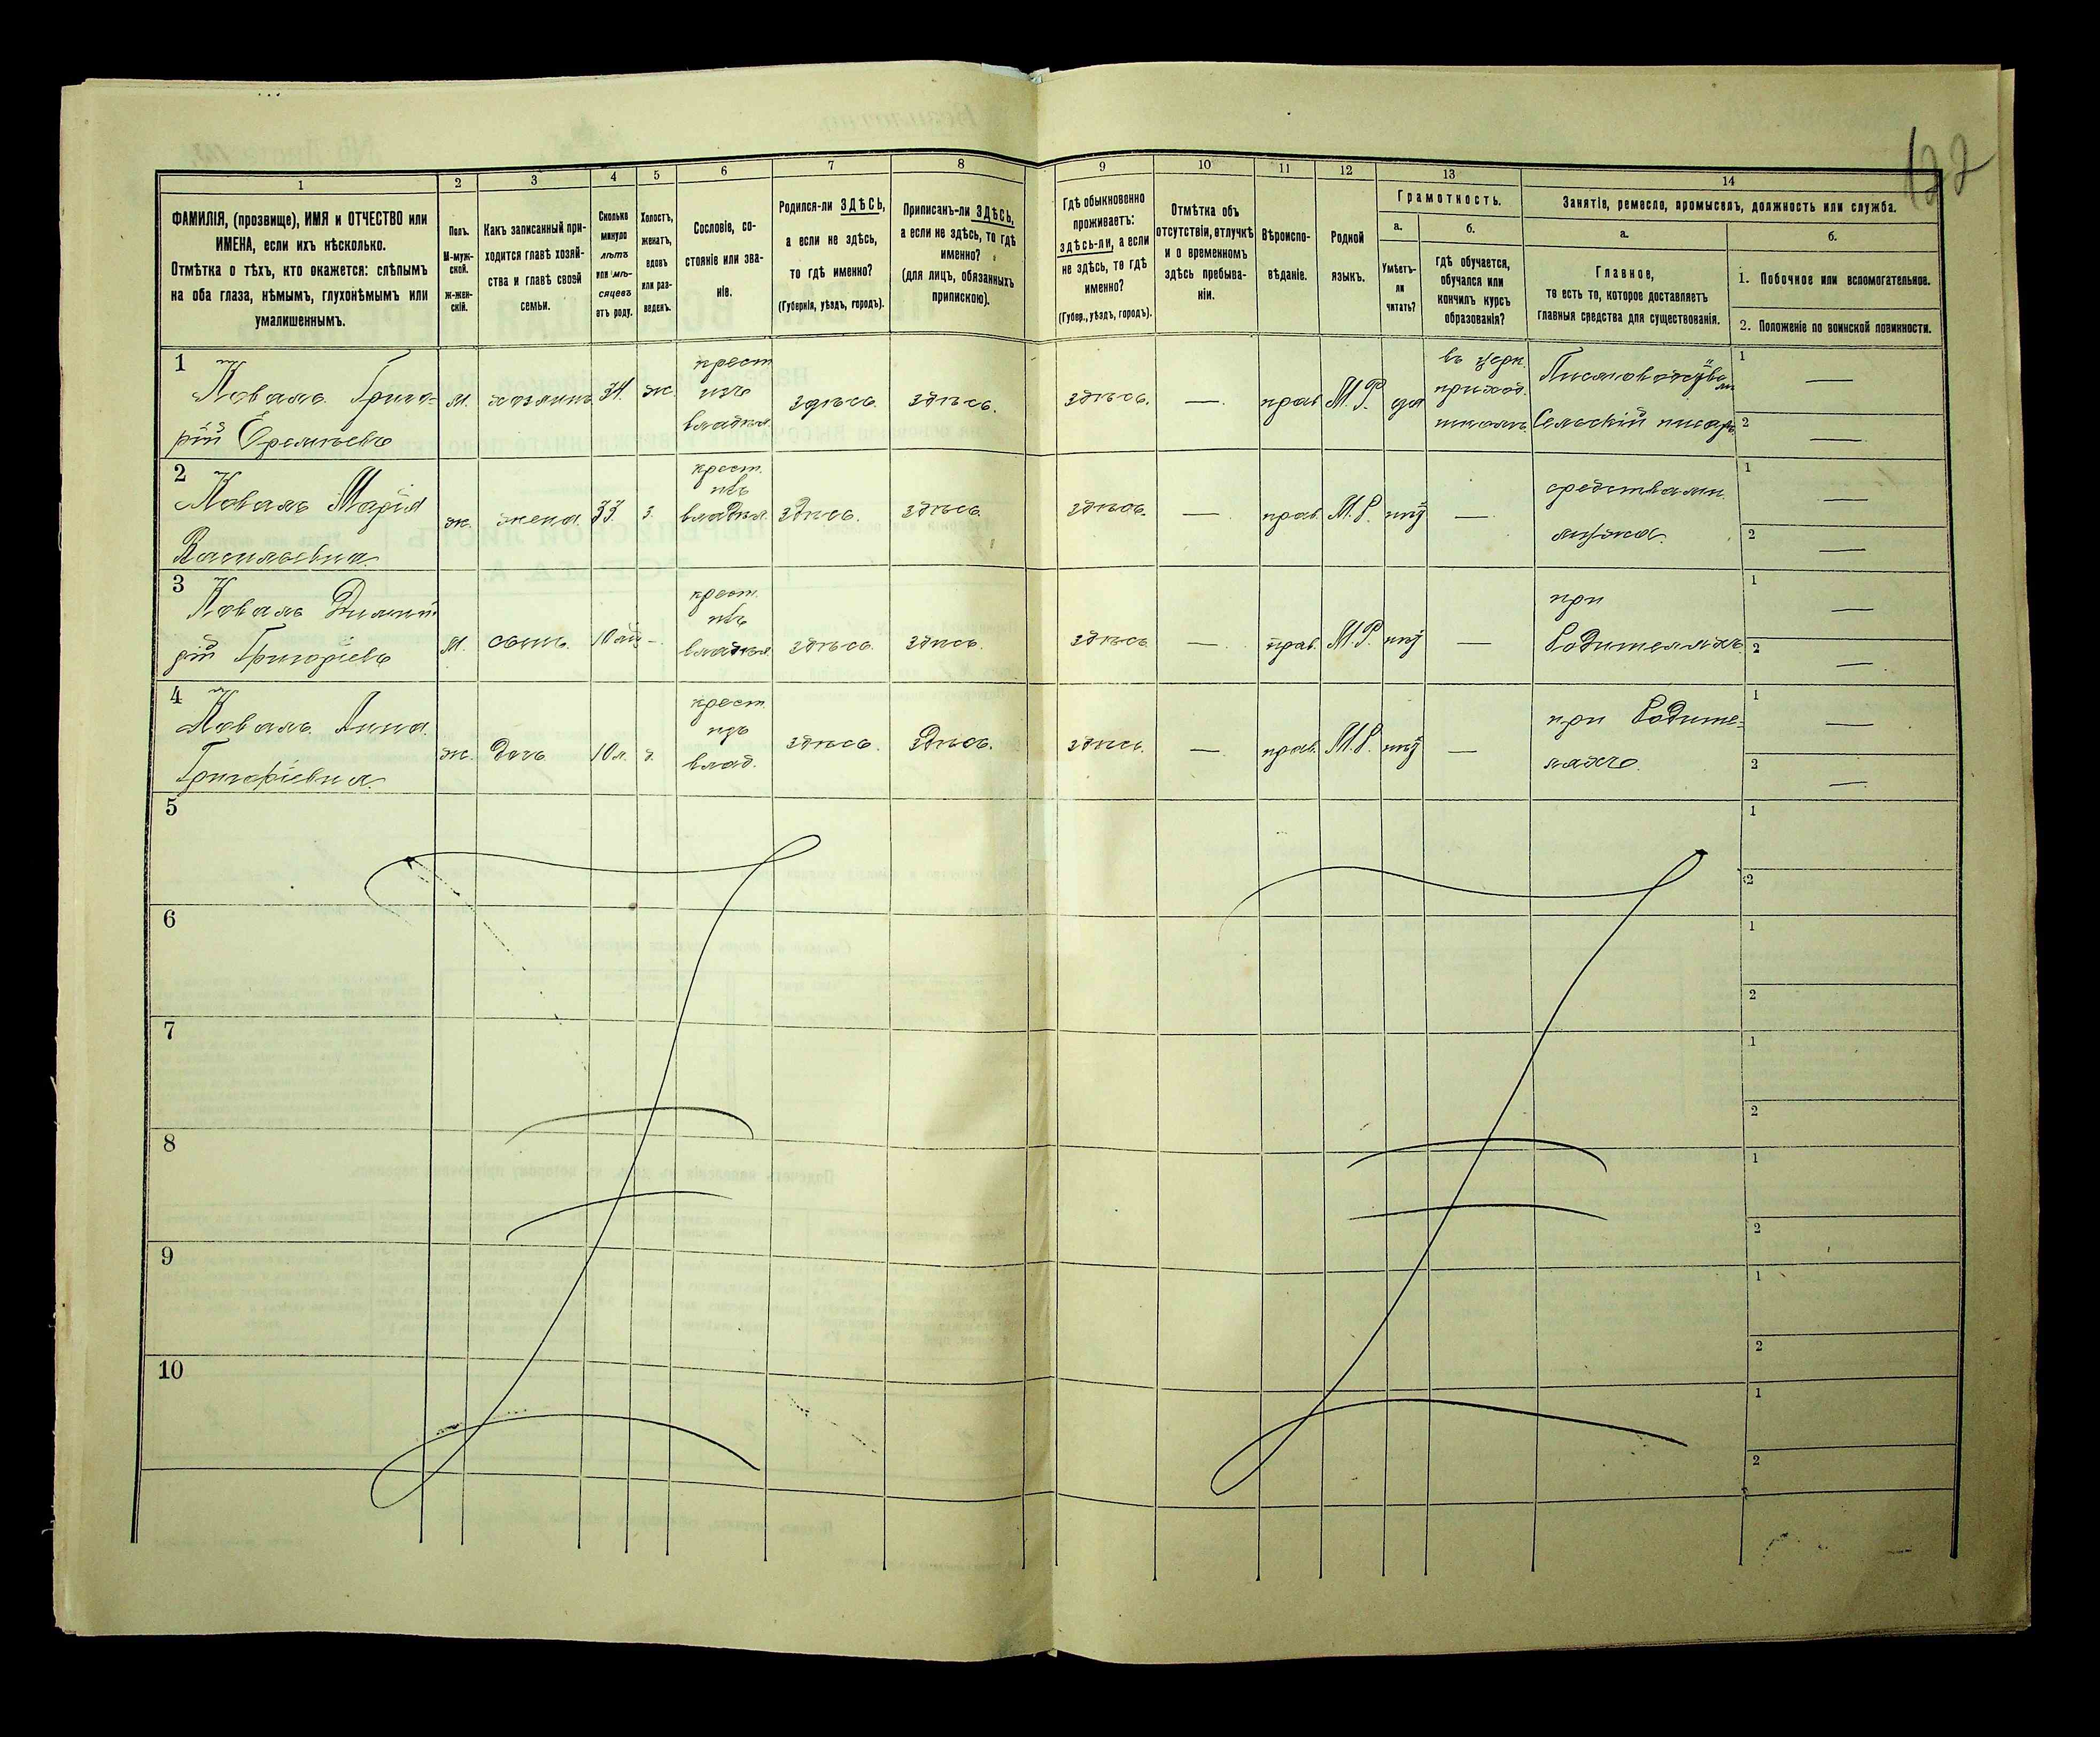 122
1
2
3
4
5
6
7
8
9
10
11
12
13
14
ФАМИЛІЯ, (прозвище), ИМЯ и ОТЧЕСТВО или
ИМЕНА, если ихъ нѣсколько.
Отмѣтка о тѣхъ, кто окажется: слѣпымъ
на оба глаза, нѣмымъ, глухонѣмымъ или
умалишеннымъ.
Полъ.
М-муж-
ской.
ж-жен-
скій.
Какъ записанный при-
ходится главѣ хозяй-
ства и главѣ своей
семьи.
Сколько
минуло
лѣтъ
или мѣ-
сяцевъ
отъ роду.
Холостъ,
женатъ,
вдовъ
или раз-
веденъ.
Сословіе, со-
стояніе или зва-
ніе.
Родился-ли ЗДѢСЬ,
а если не здѣсь,
то гдѣ именно?
(Губернія, уѣздъ, городъ).
Приписанъ-ли ЗДѢСЬ,
а если не здѣсь, то гдѣ
именно?
(для лицъ, обязанныхъ
припискою).
Гдѣ обыкновенно
проживаетъ:
здѣсь-ли, а если
не здѣсь, то гдѣ
именно?
(Губер., уѣздъ, городъ).
Отмѣтка объ
отсутствіи, отлучкѣ
и о временномъ
здѣсь пребыва-
ніи.
Вѣроиспо-
вѣданіе.
Родной
языкъ.
Грамотность.
а.
Умѣетъ-
ли
читать?
б.
гдѣ обучается,
обучался или
кончилъ курсъ
образованія?
Занятія, ремесло, промыселъ, должность или служба.
а.
Главное,
то есть то, которое доставляетъ
главныя средства для существованія.
б.
1. Побочное или вспомогательное.
2. Положеніе по воинской повинности.
1
Коваль Григо-
рій
м. хозяинъ 34 ж.
крест.
изъ
владѣл.
здѣсь. здѣсь. здѣсь. — прав. М.Р. да
въ церк.
приход.
школѣ
Сельскій писарь
1 —
2 —
2
Коваль Марія
Васильевна
ж. жена 33 з.
крест.
изъ
владѣл.
здѣсь. здѣсь. здѣсь. — прав. М.Р. нѣт —
средствами
мужа.
1 —
2 —
3
Коваль Димит
рій Григоріевъ
М. сынъ. -
крест.
изъ
владѣл.
здѣсь. здѣсь. здѣсь — прав. М.Р. нѣт —
при
Родителяхъ
1 —
2 —
4
Коваль Анна
Григоріевна
ж. дочь д.
крест.
изъ
влад.
здѣсь. здѣсь. здѣсь. — прав. М.Р. нѣт —
при Родите-
ляхъ
1 —
2 —
5
1
2
6
1
2
7
1
2
8
1
2
9
1
2
10
1
2